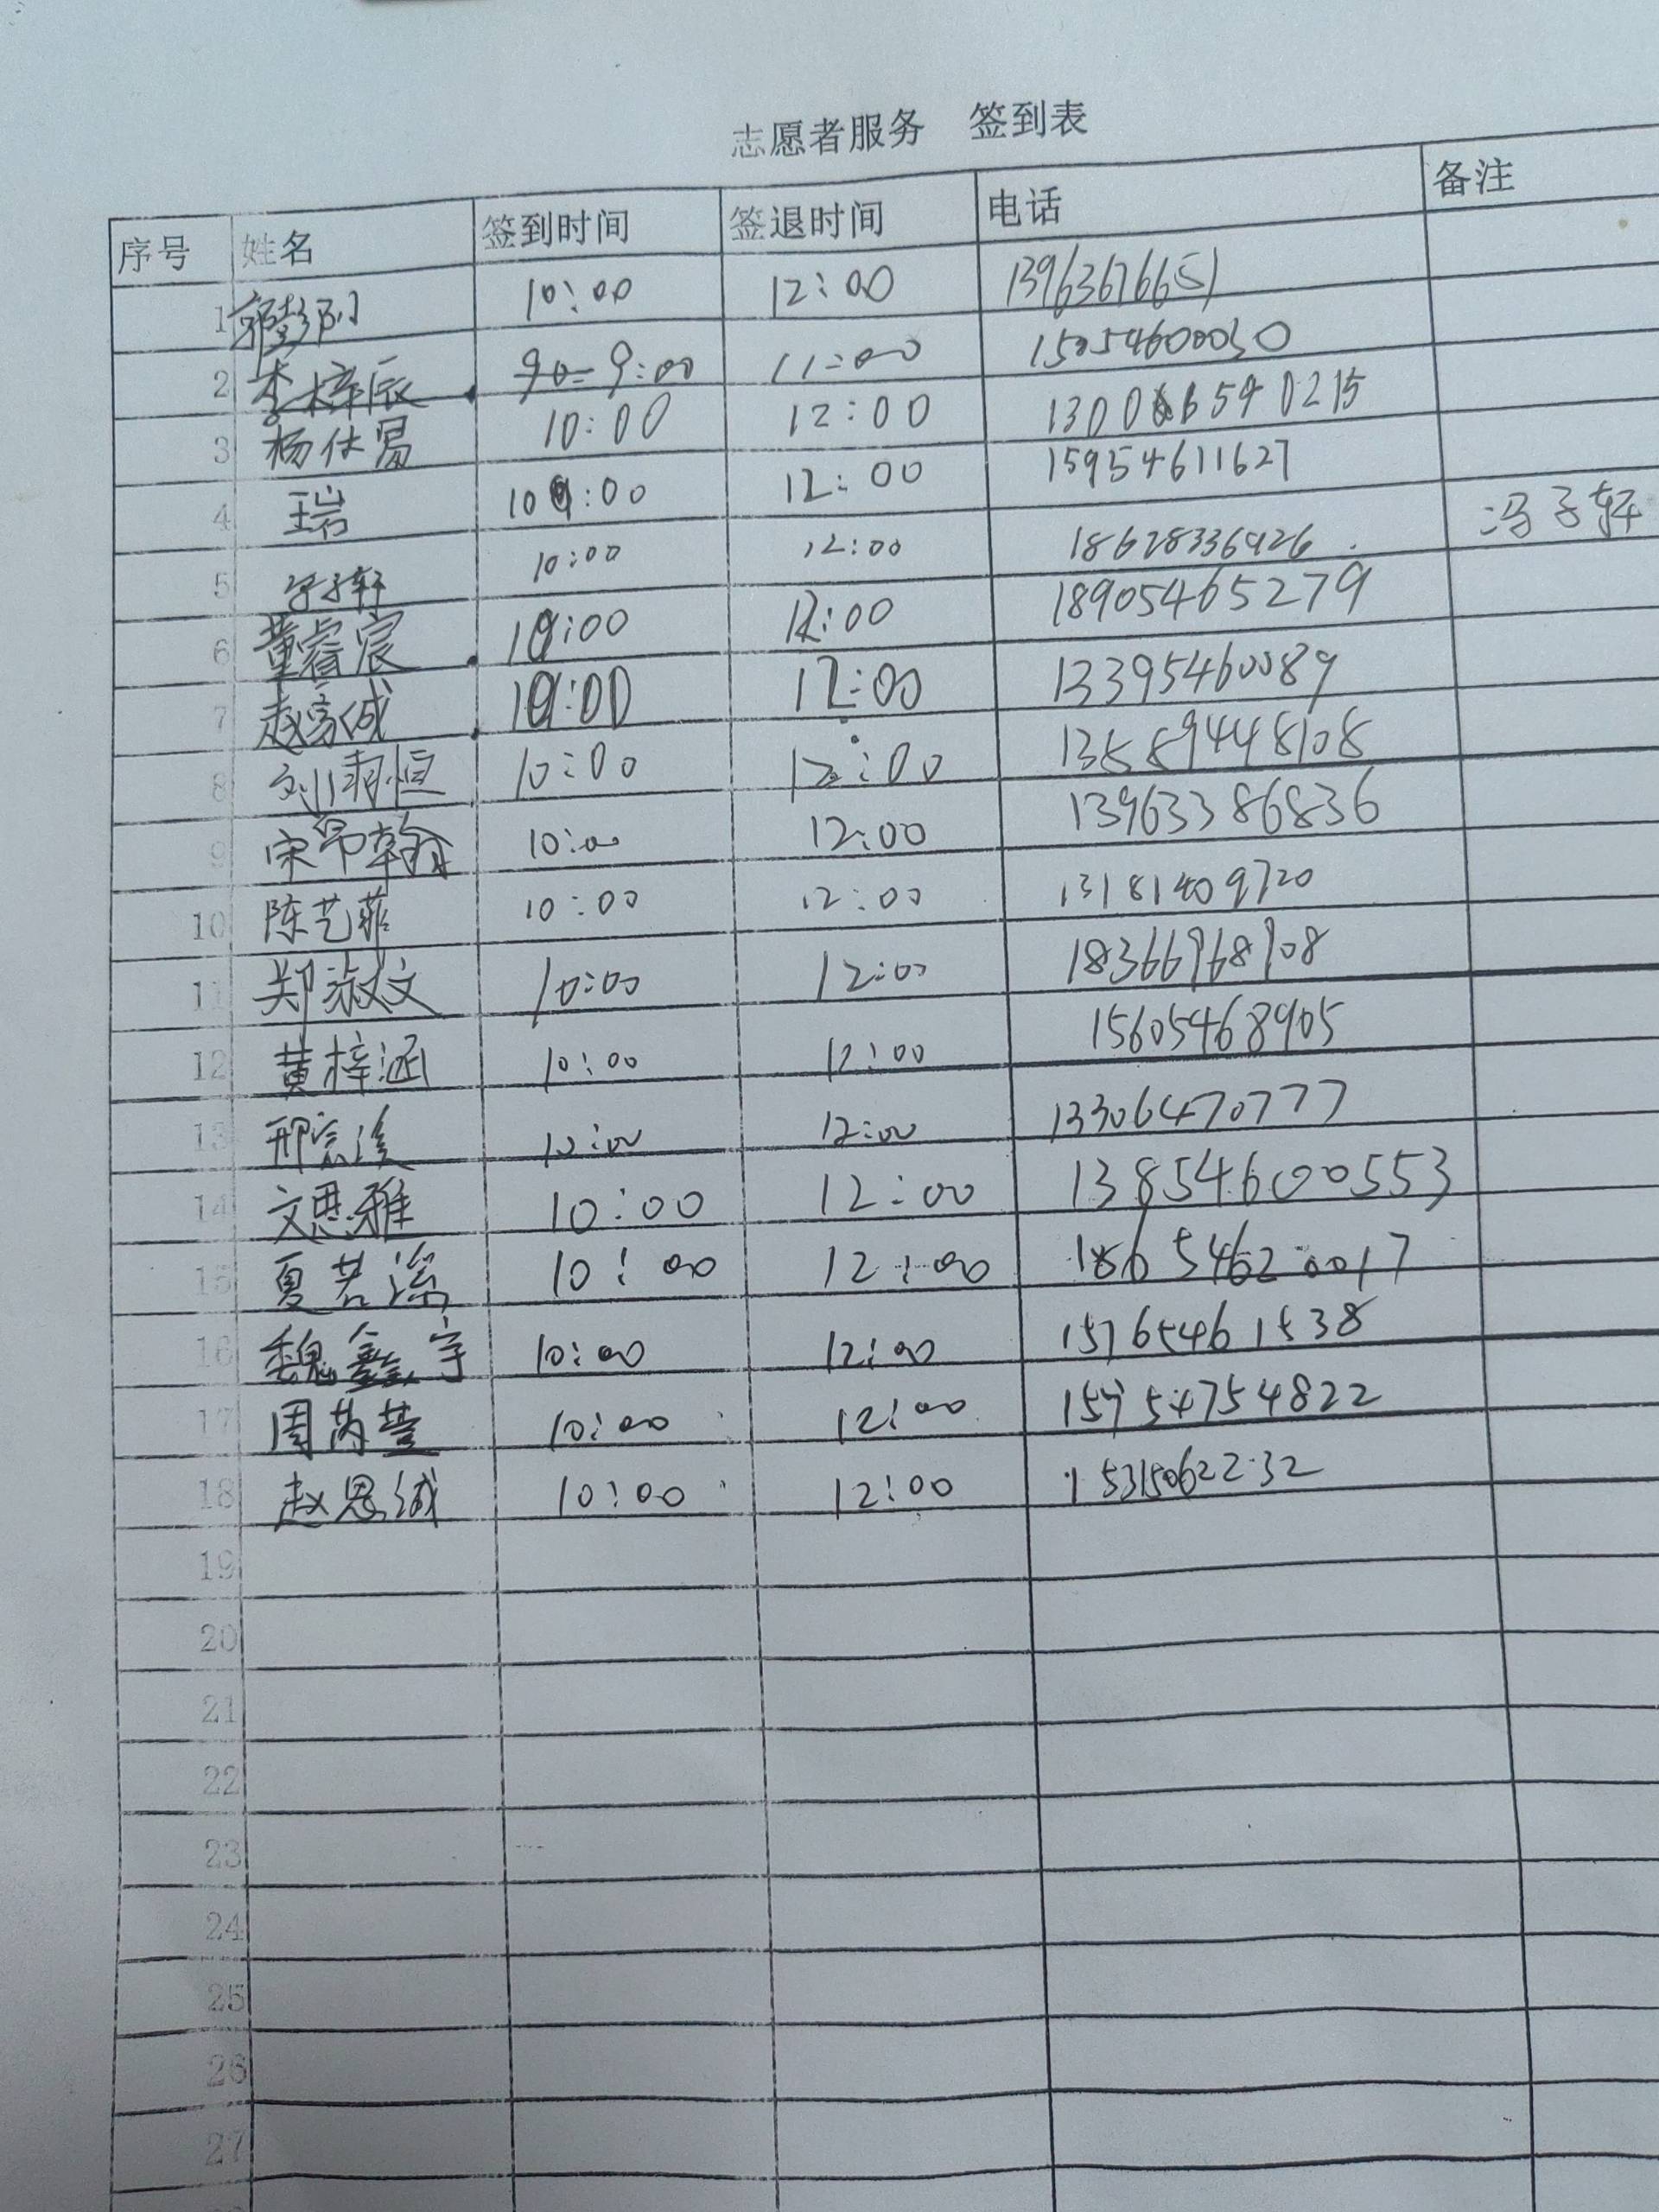 志愿者服务 签到表
序号 姓名 签到时间 签退时间 电话 备注
1 10:00 12:00 13963676651
2 李梓辰 9:00 11:00
3 杨仕昜 10:00 12:00
4 王瑞 10:00 12:00 15954611627
5 冯子轩 10:00 12:00 18628336926 冯子轩
6 董睿宸 10:00 12:00 18905465279
7 10:00 12:00 13395460089
8 10:00 12:00
9 宋昂翰 10:00 12:00 13963386836
10 陈艺菲 10:00 12:00 13181409720
11 郑淑文 10:00 12:00 18366968908
12 黄梓涵 10:00 12:00 15605468905
13 10:00 12:00 13306470777
14 文思雅 10:00 12:00 13854600553
15 夏若溪 10:00 12:00
16 魏鑫宇 10:00 12:00 15765461538
17 周芮萱 10:00 12:00
18 赵恩诚 10:00 12:00 15315062232
19
20
21
22
23
24
25
26
27